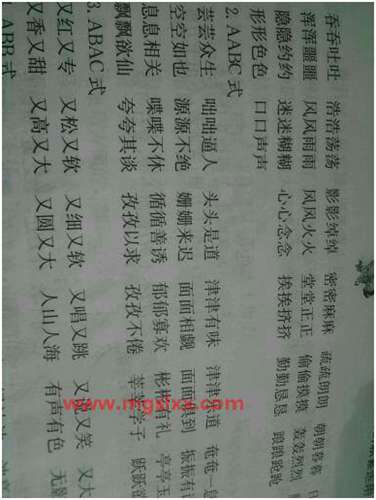 吞吞吐吐 浩浩荡荡 影影绰绰 密密麻麻 疏疏朗朗 朝朝暮暮
浑浑噩噩 风风雨雨 风风火火 堂堂正正 偷偷摸摸 轰轰烈烈
隐隐约约 迷迷糊糊 心心念念 挨挨挤挤 勤勤恳恳 踉踉跄跄
形形色色 口口声声
2. AABC 式
芸芸众生 咄咄逼人 头头是道 津津有味 津津乐道 奄奄一
空空如也 源源不绝 姗姗来迟 面面相觑 面面俱到 振振有
息息相关 喋喋不休 循循善诱 郁郁寡欢 彬彬有礼 亭亭玉
飘飘欲仙 夸夸其谈 孜孜以求 孜孜不倦 莘莘学子 跃跃欲
3. ABAC 式
又红又专 又松又软 又细又软 又唱又跳 又哭又笑 又大
又香又甜 又高又大 又圆又大 人山人海 有声有色 无
ABB 式
www.mgxlxx.com